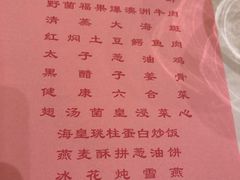 野菌福果爆澳洲牛肉
清蒸大海斑
红焖土豆鳄鱼肉
太子葱油鸡
黑醋子姜骨
健康六合菜
翅汤菌皇浸菜心
海皇珧柱蛋白炒饭
燕麦酥拼葱油饼
冰花炖雪燕